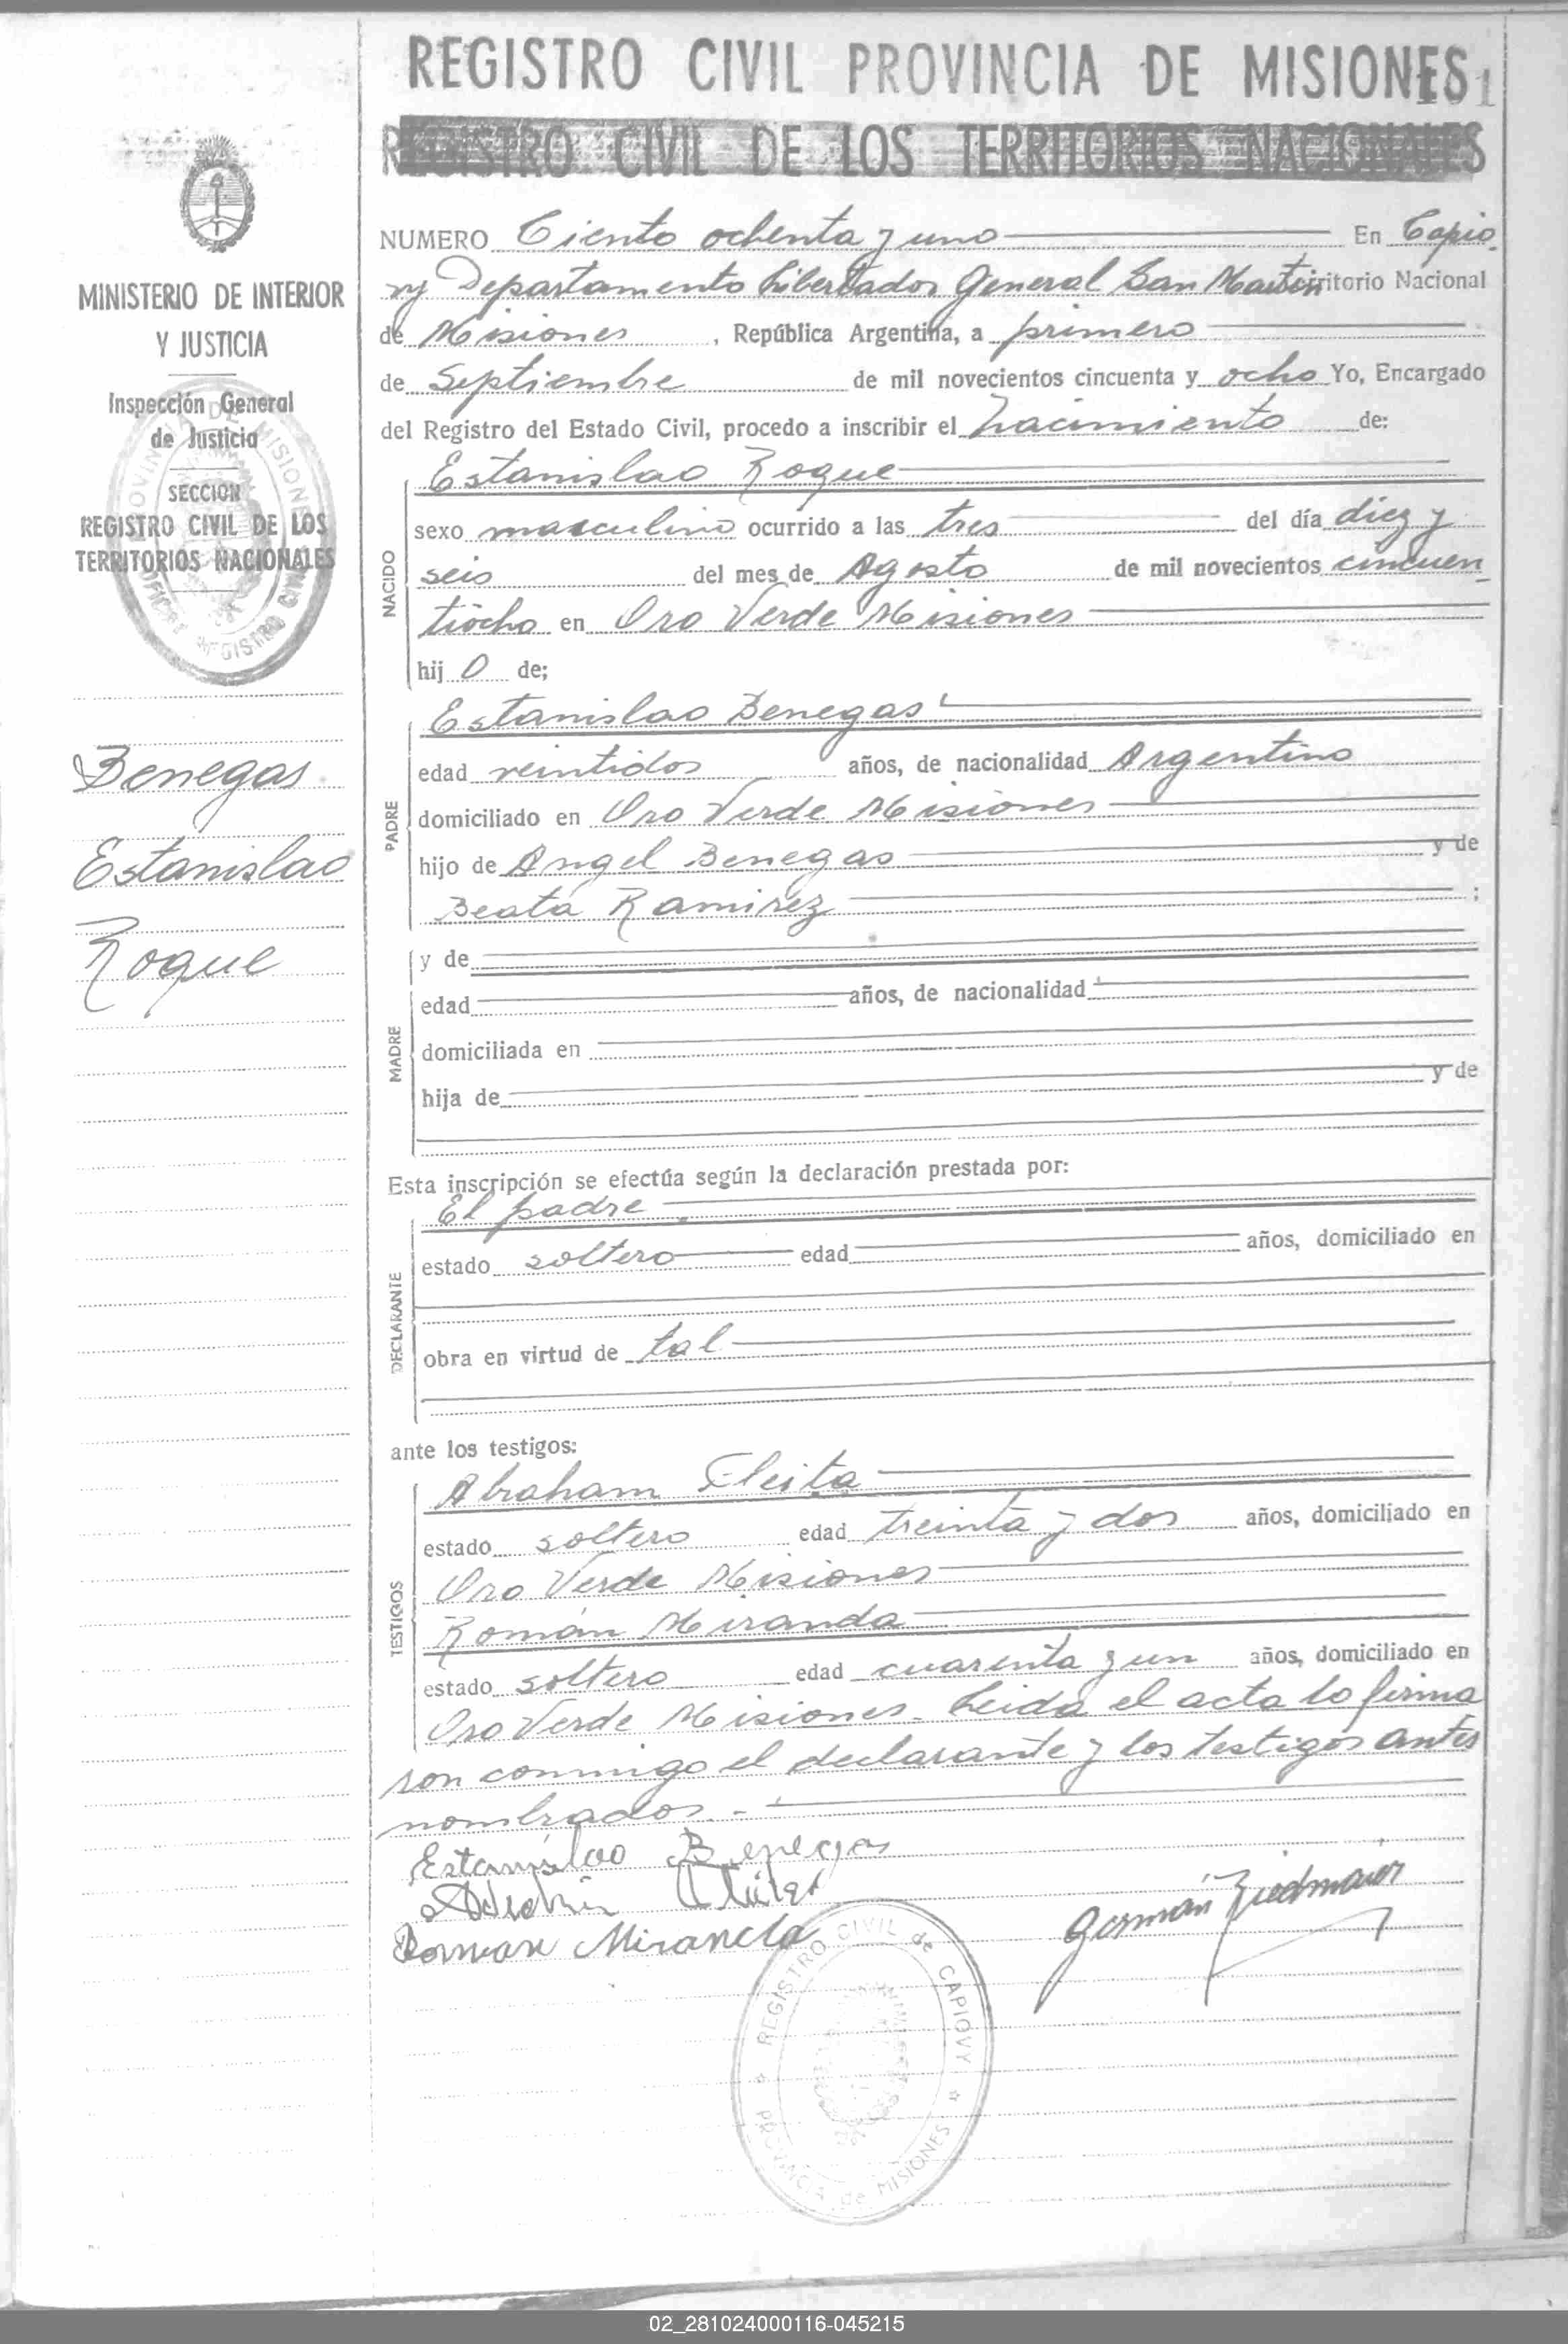 REGISTRO CIVIL PROVINCIA DE MISIONES
REGISTRO CIVIL DE LOS TERRITORIOS NACIONALES
MINISTERIO DE INTERIOR
Y JUSTICIA
Inspección General
de Justicia
SECCION
REGISTRO CIVIL DE LOS
TERRITORIOS NACIONALES
Benegas
Estanislao
Roque
NUMERO Ciento ochenta y uno En Capio
vy Departamento Libertador General San Martin Territorio Nacional
de Misiones, República Argentina, a primero
de Septiembre de mil novecientos cincuenta y ocho Yo, Encargado
del Registro del Estado Civil, procedo a inscribir el nacimiento de:
Estanislao Roque
NACIDO
sexo masculino ocurrido a las tres del día diez y
seis del mes de Agosto de mil novecientos cincuen
tiocho en Oro Verde Misiones
hij o de;
Estanislao Benegas
PADRE
edad veintidos años, de nacionalidad Argentino
domiciliado en Oro Verde Misiones
hijo de Angel Benegas y de
Beata Ramirez ;
MADRE
y de
edad años, de nacionalidad
domiciliada en
hija de y de
Esta inscripción se efectúa según la declaración prestada por:
El padre
DECLARANTE
estado soltero edad años, domiciliado en
obra en virtud de tal
ante los testigos:
Abraham Fleita
TESTIGOS
estado soltero edad treinta y dos años, domiciliado en
Oro Verde Misiones
Román Miranda
estado soltero edad cuarenta y un años, domiciliado en
Oro Verde Misiones. Leida el acta lo firma
ron conmigo el declarante y los testigos antes
nombrados.-
Estanislao Benegas
Roman Miranda
German Ziedmaier
REGISTRO CIVIL de CAPIOVY
PROVINCIA de MISIONES
02_281024000116-045215